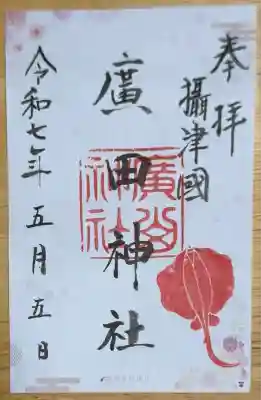 奉拝
攝津國
廣田神社
令和七年五月五日